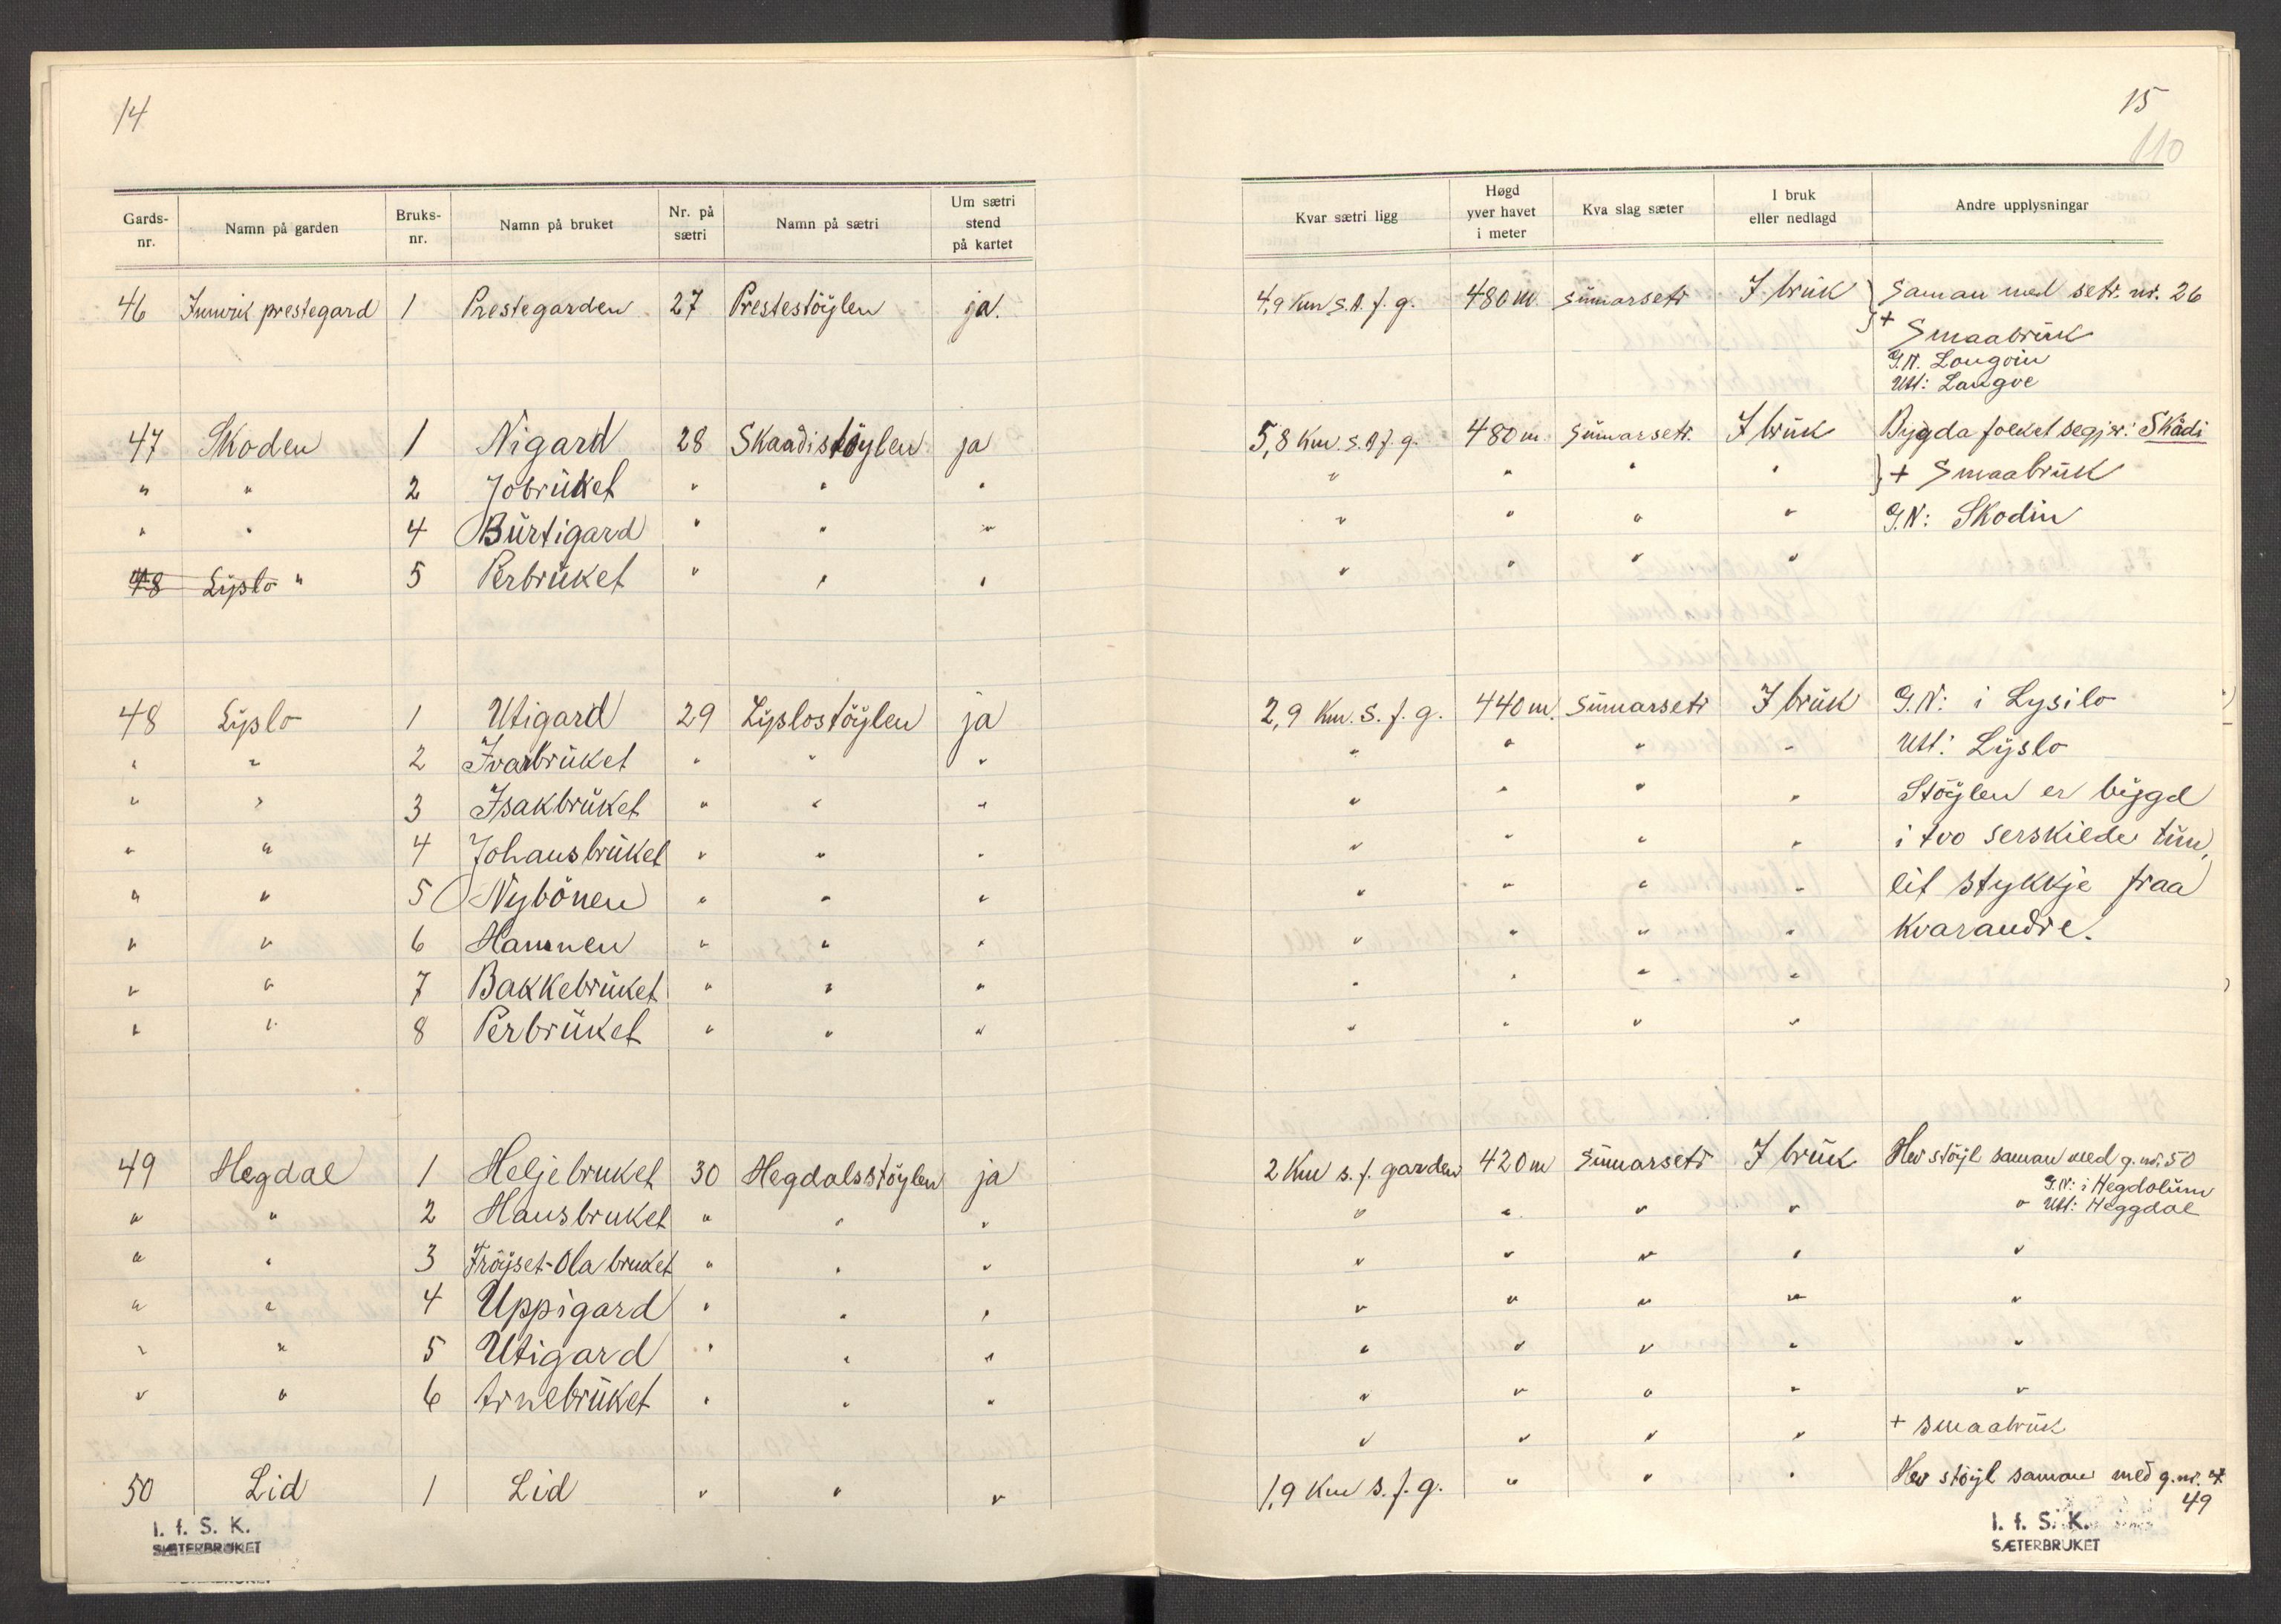 14
Gards-nr. Namn på garden Bruks-nr. Namn på bruket Nr. på sætri Namn på sætri Um sætri stend på kartet
46 Innvik prestegard 1 Prestegarden 27 Prestestöylen ja.
47 Skoden 1 Nigard 28 Skaadistöylen ja
" " 2 Jobruket " " "
" " 4 Burtigard " " "
48 Lyslo " 5 Perbruket " " "
48 Lyslo 1 Utigard 29 Lyslostöylen ja
" " 2 Ivarbruket " " "
" " 3 Isakbruket " " "
" " 4 Johansbruket " " "
" " 5 Nybönen " " "
" " 6 Hammen " " "
" " 7 Bakkebruket " " "
" " 8 Perbruket " " "
49 Hegdal 1 Heljebruket 30 Hegdalsstöylen ja
" " 2 Hansbruket " " "
" " 3 Fröyset-Ola bruket " " "
" " 4 Uppigard " " "
" " 5 Utigard " " "
" " 6 Arnebruket " " "
50 Lid 1 Lid " " "
I. f. S. K.
SÆTERBRUKET
15
110
Kvar sætri ligg Høgd yver havet i meter Kva slag sæter I bruk eller nedlagd Andre upplysningar
4,9 km S.A. f. g. 480 m sumarsetr I bruk } Saman med setr. nr. 26
+ Smaabruk
G.N. Langvin
Utt: Langve
5,8 km. S.A f. g. 480 m. sumarsetr. I bruk Bygda folket segjer: Skådi
" " " " } + Smaabruk
" " " " G.N: Skodin
" " " "
2,9 Km. S. f. g. 440 m. sumarsetr I bruk G.N: i Lysilo
" " " " Utt: Lyslo
" " " " Stöylen er bygd
" " " " i tvo serskilde tun,
" " " " eit stykkje fraa
" " " " kvarandre.
" " " "
" " " "
2 Km s. f. garden 420 m sumarsetr I bruk Hev stöyl saman med g.nr. 50
G.N: i Hegdolum
" " " " " Utt: Heggdal
" " " " "
" " " " "
" " " " "
" " " " "
" " " " + smaabruk
1,9 Km s. f. g. " " " Hev stöyl saman med g.nr.
49
I. f. S. K.
SÆTERBRUKET